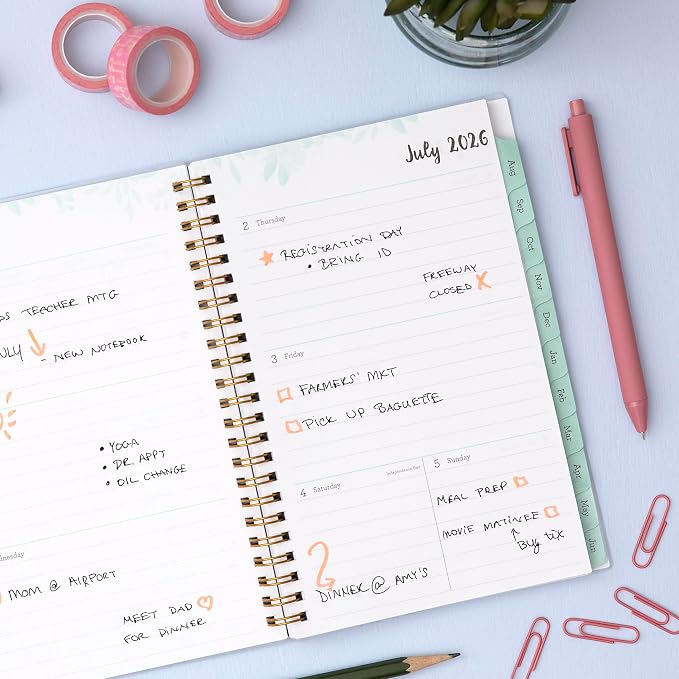 TEACHER MTG
- NEW NOTEBOOK
• YOGA
• DR. APPT
• OIL CHANGE
MOM @ AIRPORT
MEET DAD
FOR DINNER
July 2026
2 Thursday
REGISTRATION DAY
• BRING ID
FREEWAY
CLOSED
3 Friday
FARMERS' MKT
PICK UP BAGUETTE
4 Saturday
Independence Day
DINNER @ AMY'S
5 Sunday
MEAL PREP
MOVIE MATINEE
BUY TIX
Aug
Sep
Oct
Nov
Dec
Jan
Feb
Mar
Apr
May
Jun